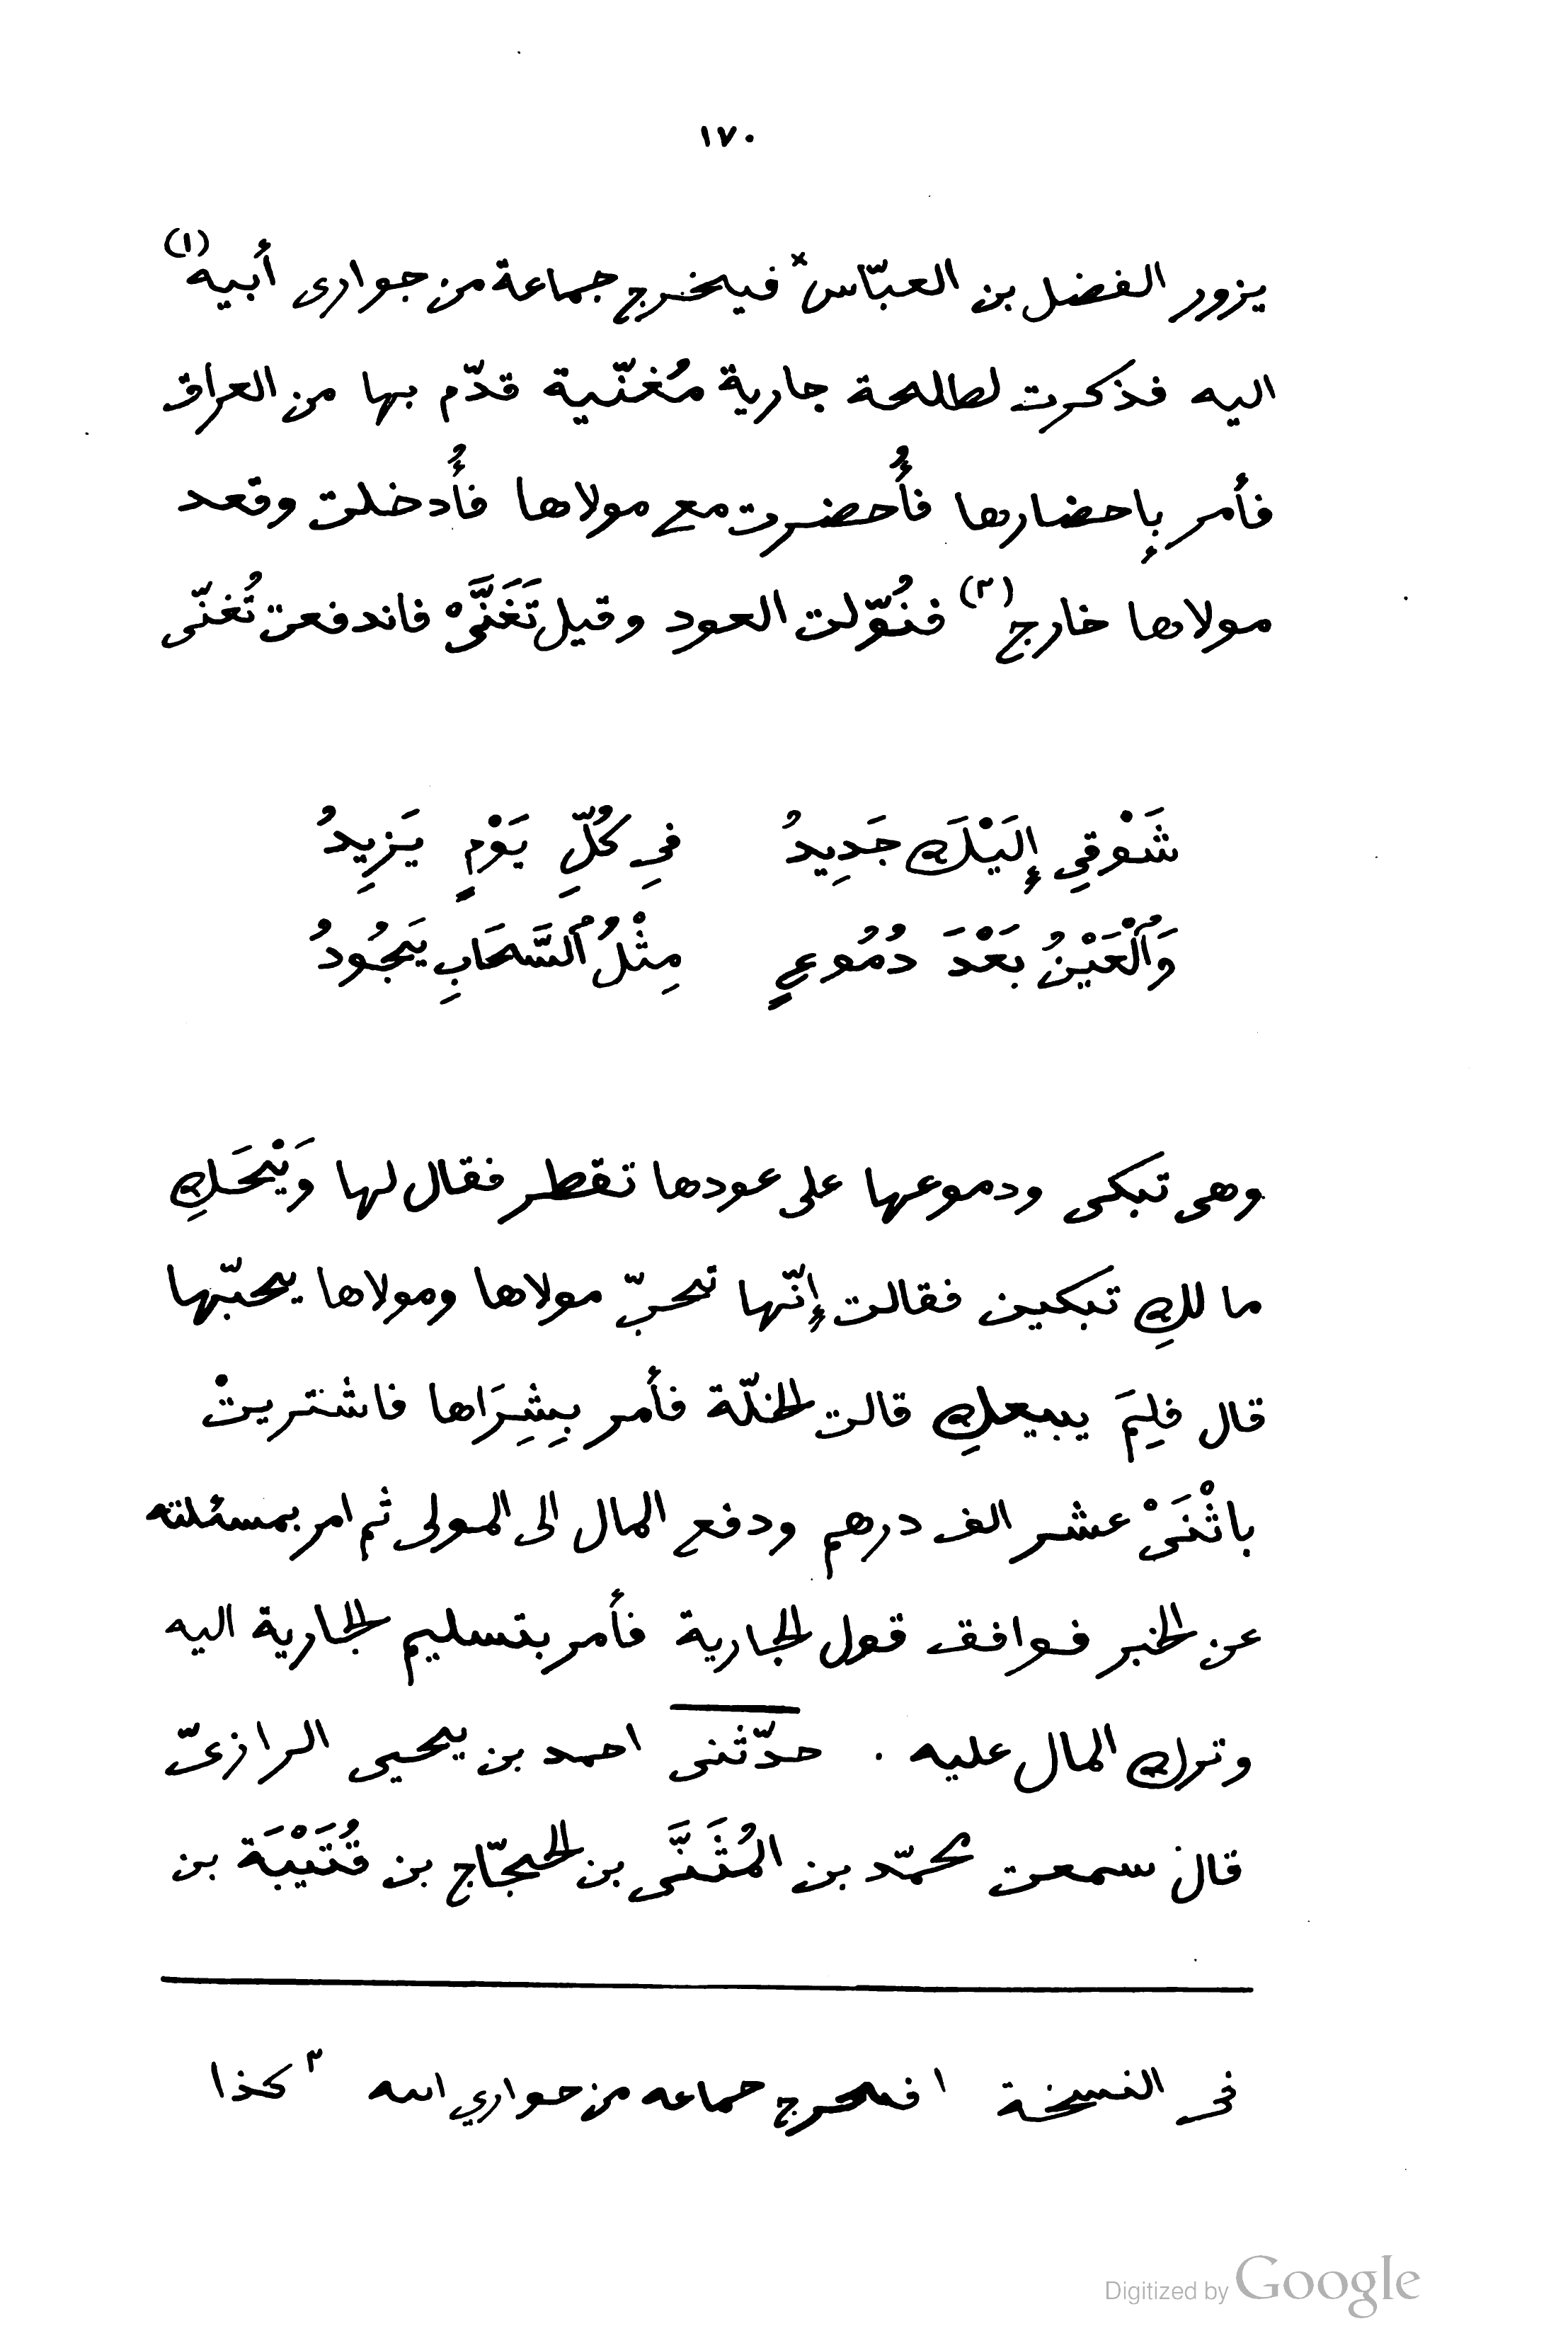 ١٧٠
يزور الفضل بن العبّاس × فيخرج جماعة من جوارى أبيه (١)
اليه فذكرت لطلحة جارية مُغنّية قدّم بها من العراق
فأمر بإحضارها فأُحضرت مع مولاها فأُدخلت وقعد
مولاها خارج (٢) فنُوّلت العود وقيل تَغَنَّىْ فاندفعت تُغنّى
شَوْقِي إِلَيْكَ جَدِيدُ فِي كُلِّ يَوْمٍ يَزِيدُ
وَٱلْعَيْنُ بَعْدَ دُمُوعٍ مِثْلُ ٱلسَّحَابِ يَجُودُ
وهى تبكى ودموعها على عودها تقطر فقال لها وَيْحَكِ
ما لكِ تبكين فقالت إنّها تحبّ مولاها ومولاها يحبّها
قال فلِمَ يبيعكِ قالت لخلّة فأمر بِشِرَاها فاشتريتْ
باثْنَىْ عشر الف درهم ودفع المال الى المولى ثم امر بمسئلته
عن الخبر فوافق قول الجارية فأمر بتسليم الجارية اليه
وترك المال عليه . حدّثنى احمد بن يحيى الرازىّ
قال سمعت محمّد بن المُثَنَّى بن الحجّاج بن قُتَيْبَة بن
فى النسخة ١ فىحرج حماعه من حواري اىىه ٢ كذا
Digitized by Google